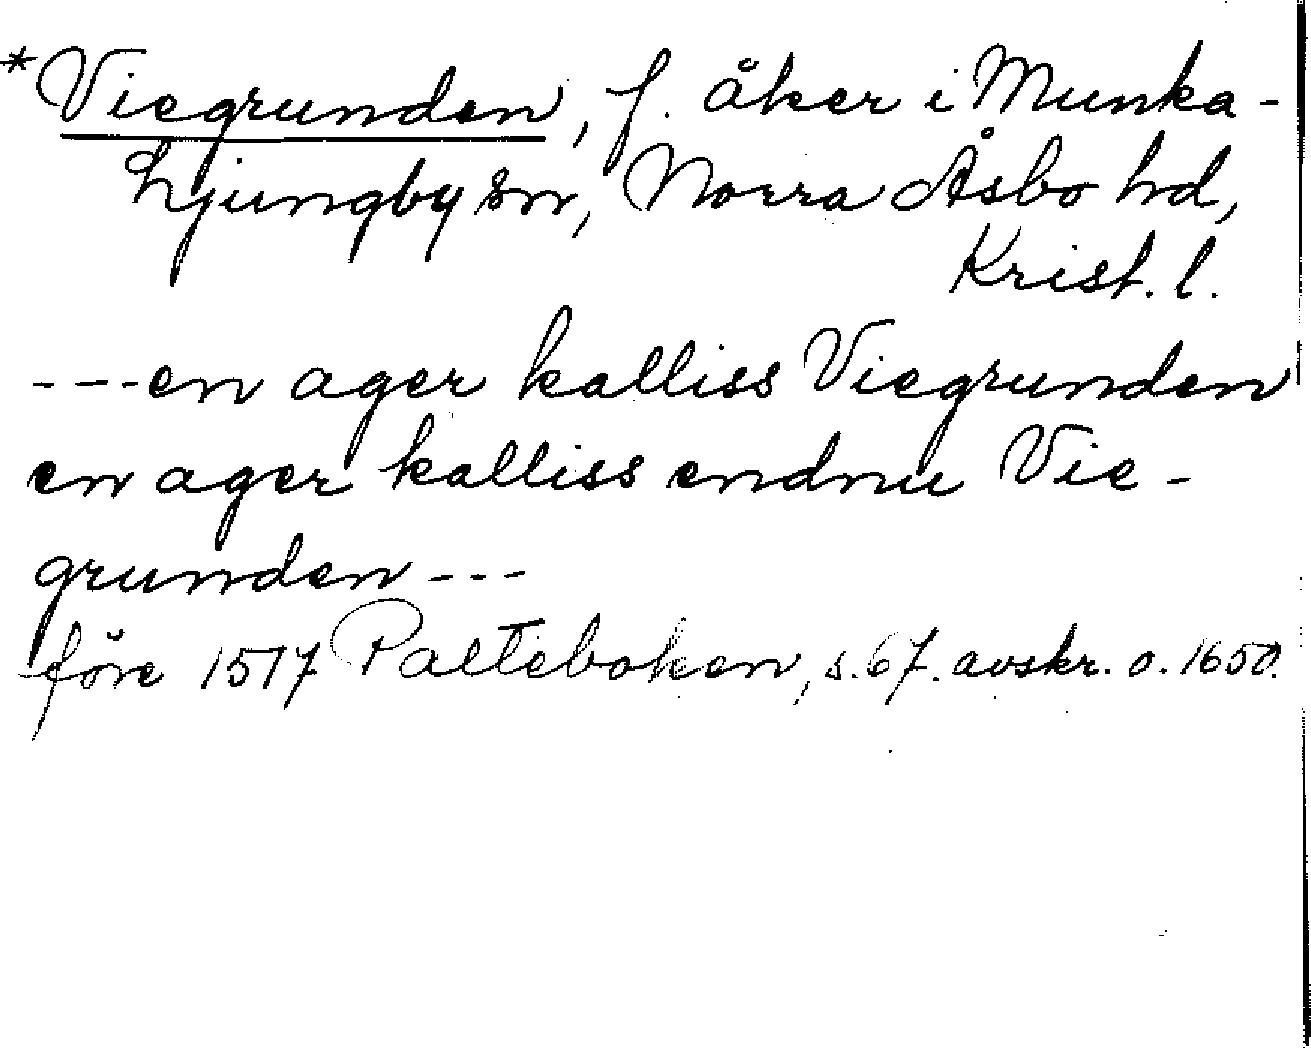 *Viegrunden, f. åker i Munka-
Ljungby sn, Norra Åsbo hd,
Krist. l.
---en ager kalliss Viegrunden
en ager kalliss endnu Vie-
grunden---
före 1517 Palteboken, s. 67. avskr. o. 1650.